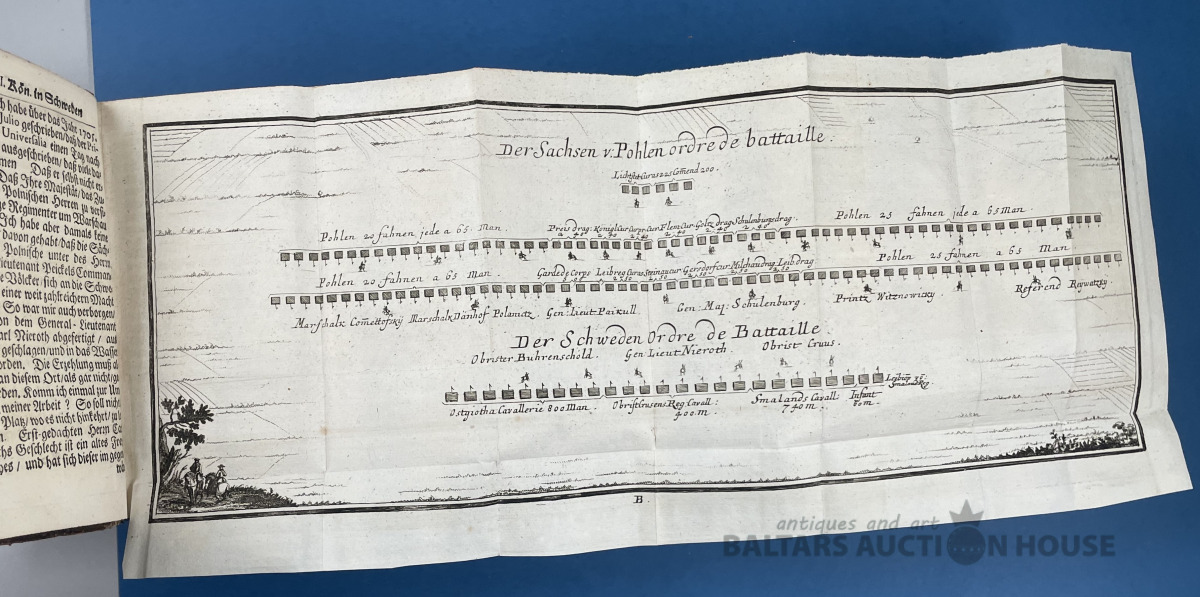 I. Kön. in Schweden
ch habe über das Jahr 1705.
Julio geschrieben/ daß der Pri-
Universalia einen Tag nach
ausgeschrieben/ daß viele da-
men Daß er selbst nicht er-
Daß Ihre Majestät/ das Zu-
Polnischen Herren zu versu-
ge Regimenter um Warschau
Ich habe aber damals keine
davon gehabt/ daß die Säch-
Polnische unter des Herrn
Lieutenant Peickels Comman-
Völcker sich an die Schwe
einer weit zahlreichern Macht
So war mir auch verborgen
on dem General-Lieutenant
arl Nieroth abgefertigt / aus
geschlagen/ und in das Wasser
orden. Die Erzehlung muß al-
an diesem Ort/ als gar nicht/ ge
den. Komm ich einmal zur Um
meiner Arbeit? So soll nicht
Platz/ wo es nicht hinkehrt/ zu
n. Erst-gedachten Herrn Ca
chs Geschlecht ist ein altes Frey
ges / und hat sich dieser im gegen
Der Sachsen v. Pohlen ordre de battaille.
Comend 200.
Pohlen 20 fahnen jede a 65. Man.
Preis drag: Königl Cur Flem Cur Goltz drag Schulenburgs drag.
Pohlen 25 fahnen jede a 65 Man
Pohlen 20 fahnen a 65 Man
Garde de Corps Leibreg Milchau drag Leib drag
Pohlen 25 fahnen a 65 Man
Marschalk Comettofskij Marschalk Dänhof Polamitz. Gen: Lieut Paikull. Gen: Maj: Schulenburg. Printz Witznowicky. Referend Rzywatzky.
Der Schweden Ordre de Battaille.
Obrister Buhrenschöld. Gen Lieut Nieroth. Obrist Cruus.
Ostgiotha Cavallerie 800 Man. Obrist Crusens Reg Cavall: 400 m. Smalands Cavall: 740 m. Infant 80 m.
B.
antiques and art
BALTARS AUCTION HOUSE